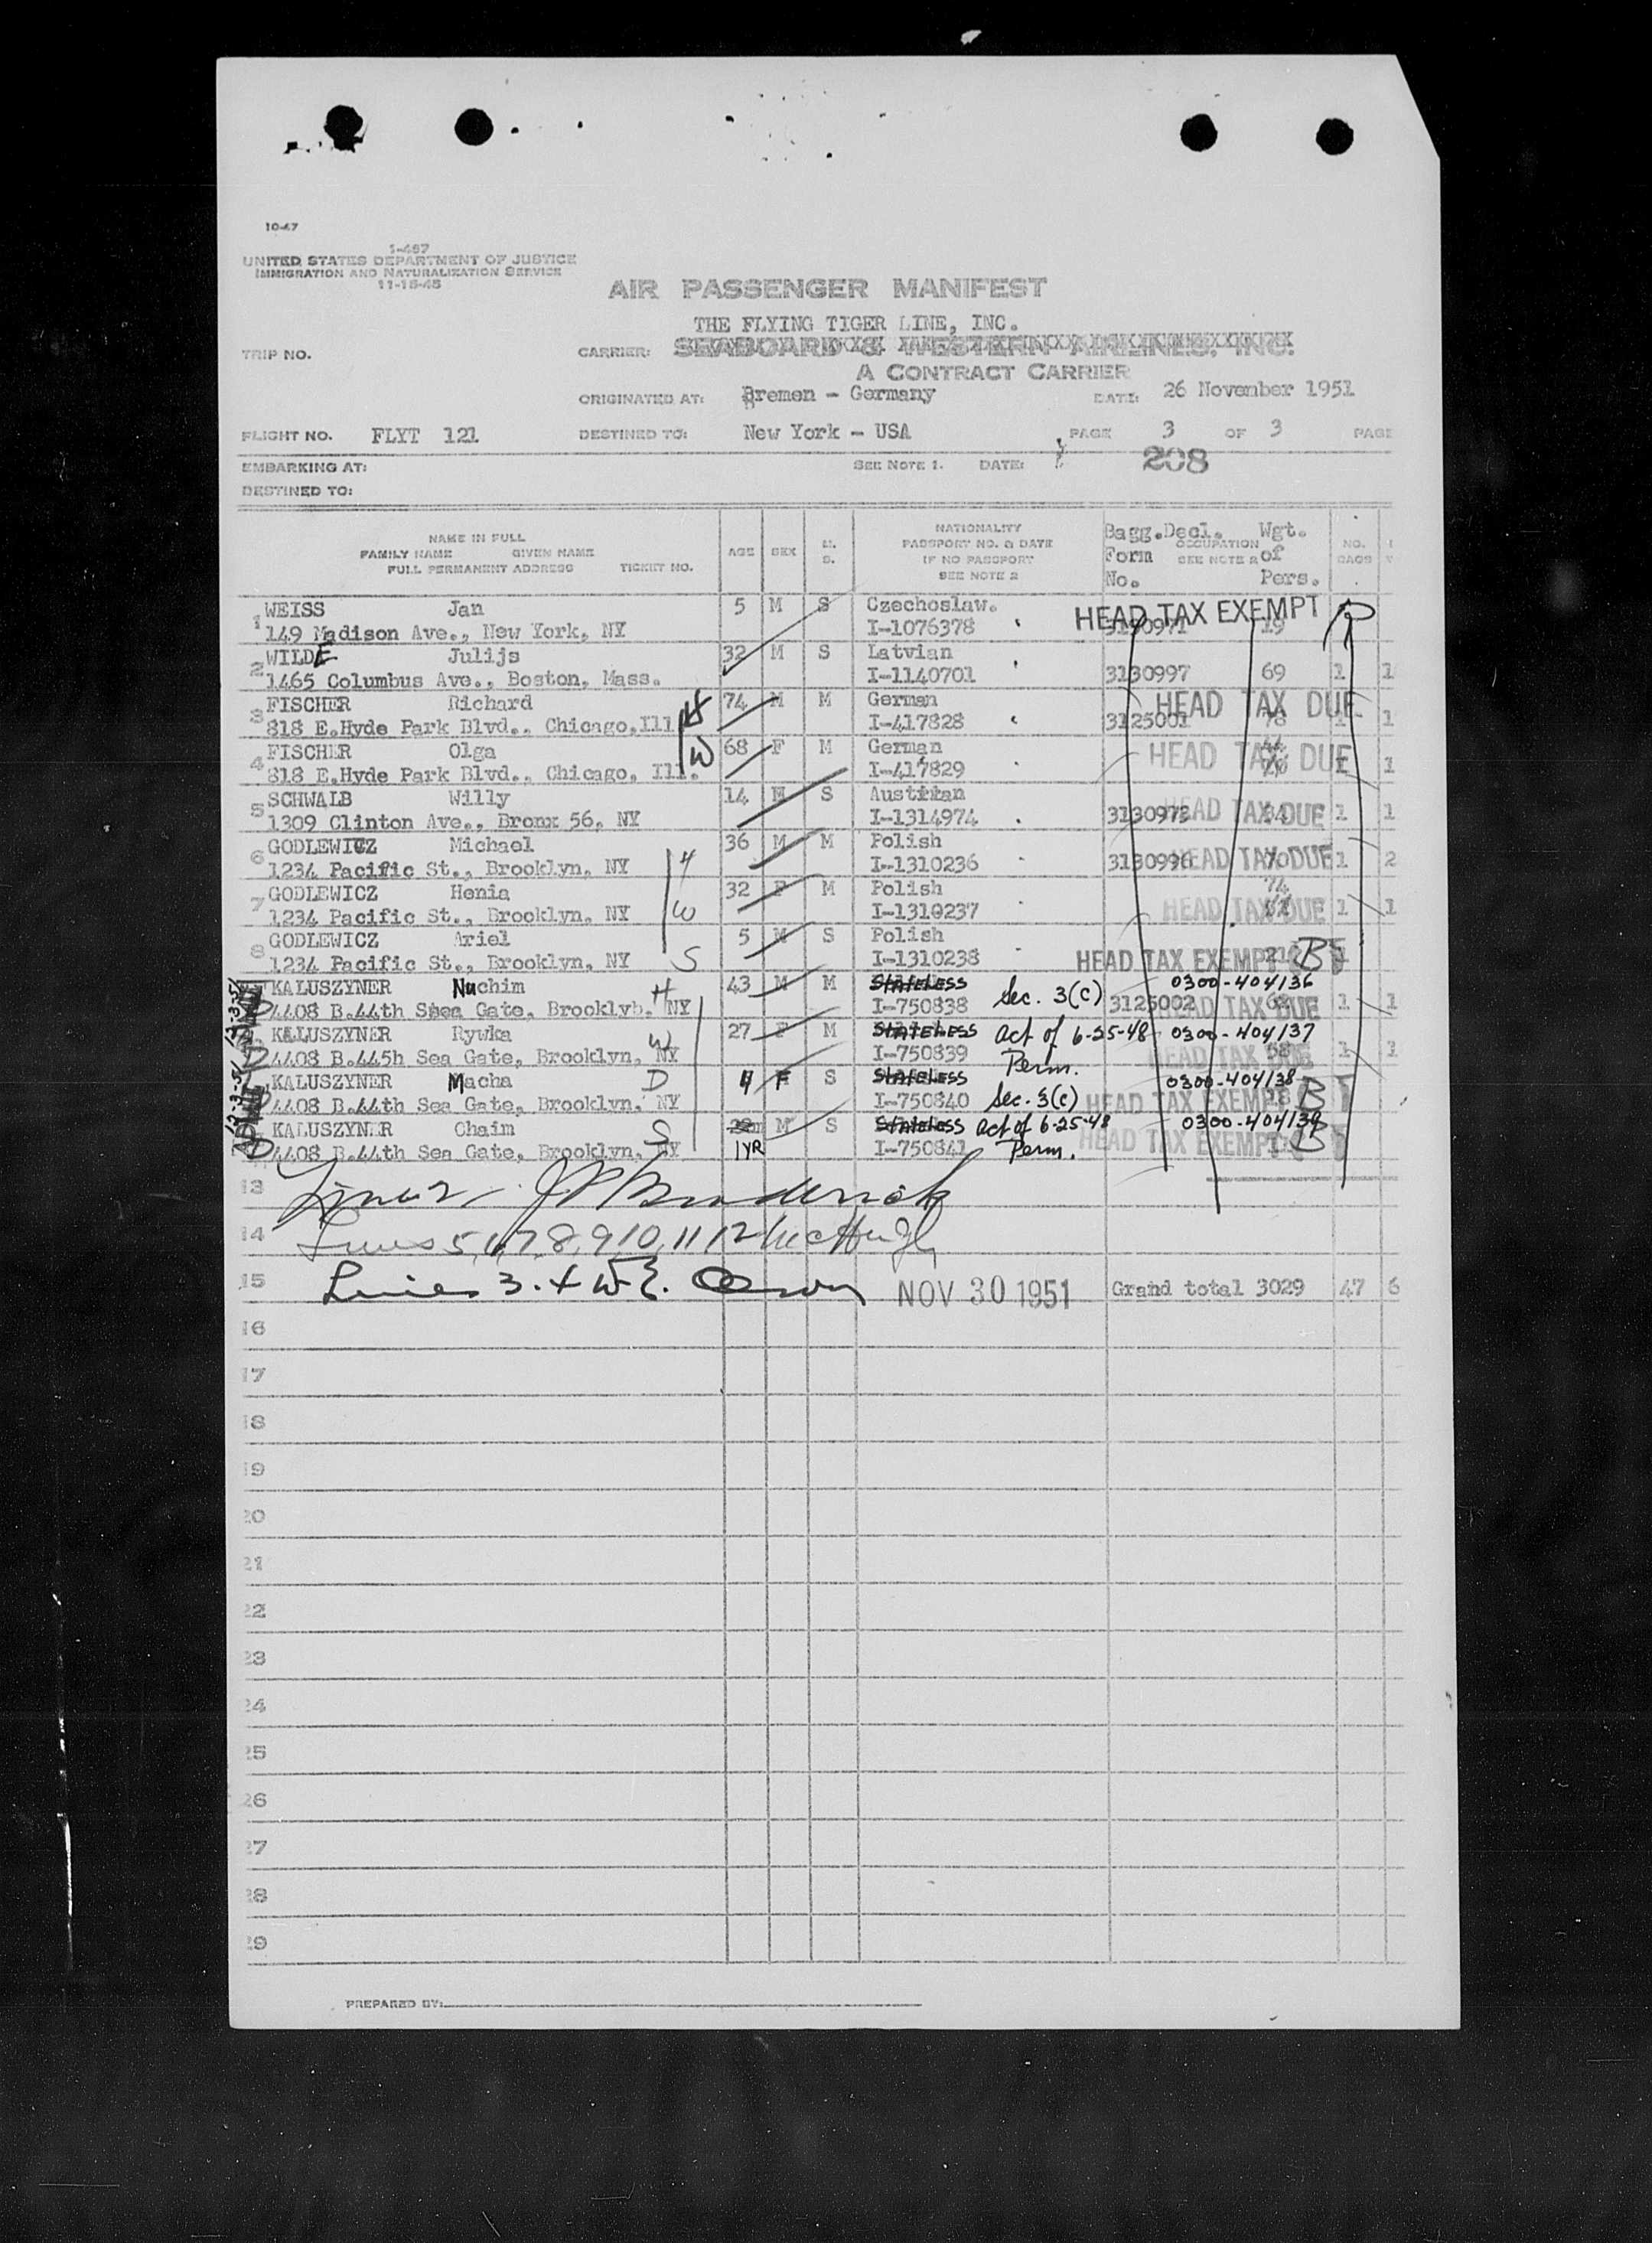 10-47
1-467
UNITED STATES DEPARTMENT OF JUSTICE
IMMIGRATION AND NATURALIZATION SERVICE
11-15-45
AIR PASSENGER MANIFEST
THE FLYING TIGER LINE, INC.
TRIP NO. CARRIER: SEABOARD & WESTERN AIRLINES, INC.
A CONTRACT CARRIER
ORIGINATED AT: Bremen - Germany DATE: 26 November 1951
FLIGHT NO. FLYT 121 DESTINED TO: New York - USA PAGE 3 OF 3 PAGE
EMBARKING AT: SEE NOTE 1. DATE: 208
DESTINED TO:
NAME IN FULL
FAMILY NAME GIVEN NAME
FULL PERMANENT ADDRESS TICKET NO.
AGE SEX M. S.
NATIONALITY
PASSPORT NO. & DATE
IF NO PASSPORT
SEE NOTE 2
Bagg.Decl. Wgt.
Form OCCUPATION SEE NOTE 2 of
No. Pers.
NO. BAGS
1 WEISS Jan 5 M S Czechoslaw. HEAD TAX EXEMPT
149 Madison Ave., New York, NY I-1076378 3130971 19
2 WILDE Julijs 32 M S Latvian
1465 Columbus Ave., Boston, Mass. I-1140701 3130997 69 1 1
3 FISCHER Richard H 74 M M German HEAD TAX DUE
818 E.Hyde Park Blvd., Chicago,Ill I-417828 3125001 78 1 1
4 FISCHER Olga W 68 F M German HEAD TAX DUE
818 E.Hyde Park Blvd., Chicago, Ill. I-417829 1 1
5 SCHWALB Willy 14 M S Austrian
1309 Clinton Ave., Bronx 56, NY I-1314974 3130972 HEAD TAX DUE 1 1
6 GODLEWICZ Michael 36 M M Polish
1234 Pacific St., Brooklyn, NY H I-1310236 3130996 HEAD TAX DUE 70 1 2
7 GODLEWICZ Henia 32 F M Polish 74
1234 Pacific St., Brooklyn, NY W I-1310237 HEAD TAX DUE 1 1
8 GODLEWICZ Ariel 5 M S Polish
1234 Pacific St., Brooklyn, NY S I-1310238 HEAD TAX EXEMPT 21 B
KALUSZYNER Nuchim H 43 M M Stateless 0300-404136
4408 B.44th Sea Gate, Brooklyb, NY I-750838 Sec. 3(c) 3125002 HEAD TAX DUE 1 1
KALUSZYNER Rywka W 27 F M Stateless Act of 6-25-48 0300-404137
4408 B.445h Sea Gate, Brooklyn, NY I-750839 Perm. HEAD TAX DUE 58 1 1
KALUSZYNER Macha D 4 F S Stateless 0300-404138
4408 B.44th Sea Gate, Brooklyn, NY I-750840 Sec. 3(c) HEAD TAX EXEMPT 18 B
KALUSZYNER Chaim S M S Stateless Act of 6-25-48 0300-404139
4408 B.44th Sea Gate, Brooklyn, NY 1YR I-750841 Perm. HEAD TAX EXEMPT B
13
14 Lines 5,6,7,8,9,10,11,12 McHugh
15 Lines 3. + NOV 30 1951 Grand total 3029 47 6
16
17
18
19
20
21
22
23
24
25
26
27
28
29
PREPARED BY: